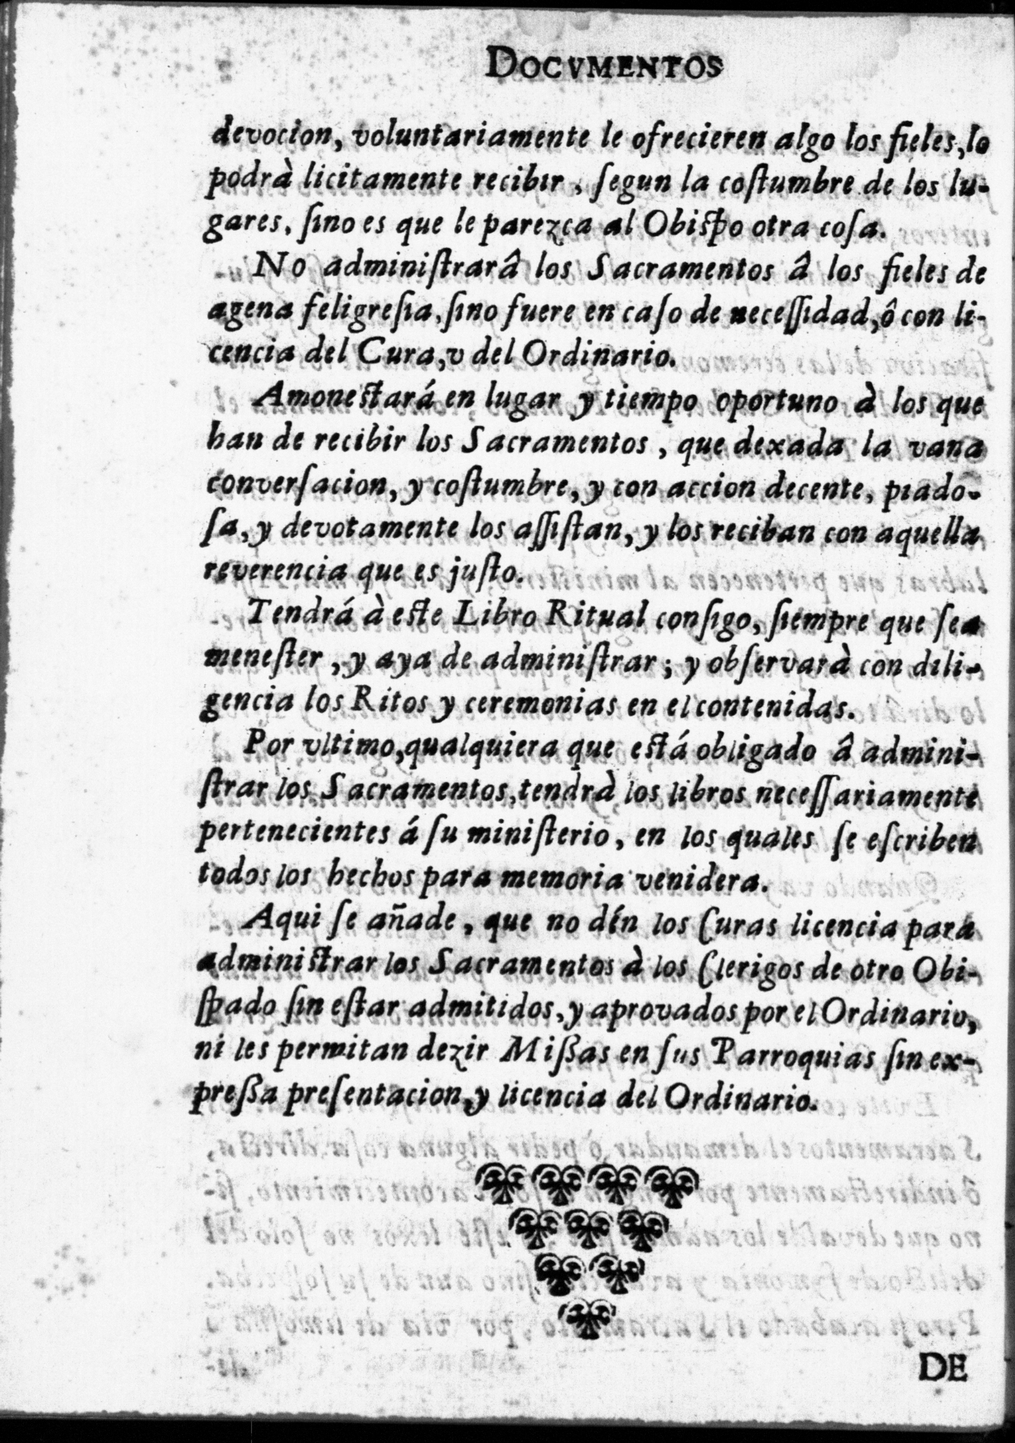 DOCVMENTOS
devocion, voluntariamente le ofrecieren algo los fieles, lo
podrà licitamente recibir, ſegun la coſtumbre de los lu-
gares, ſino es que le parezca al Obiſpo otra coſa.
No adminiſtrarâ los Sacramentos â los fieles de
agena feligreſia, ſino fuere en caſo de neceſſidad, ô con li-
cencia del Cura, v del Ordinario.
Amoneſtará en lugar y tiempo oportuno à los que
han de recibir los Sacramentos, que dexada la vana
converſacion, y coſtumbre, y con accion decente, piado-
ſa, y devotamente los aſſiſtan, y los reciban con aquella
reverencia que es juſto.
Tendrá à eſte Libro Ritual conſigo, ſiempre que ſea
meneſter, y aya de adminiſtrar; y obſervarà con dili-
gencia los Ritos y ceremonias en el contenidas.
Por vltimo, qualquiera que eſtá obligado â admini-
ſtrar los Sacramentos, tendrà los libros neceſſariamente
pertenecientes á ſu miniſterio, en los quales ſe eſcriben
todos los hechos para memoria venidera.
Aqui ſe añade, que no dén los Curas licencia para
adminiſtrar los Sacramentos à los Clerigos de otro Obi-
ſpado ſin eſtar admitidos, y aprovados por el Ordinario,
ni les permitan dezir Mißas en ſus Parroquias ſin ex-
preßa preſentacion, y licencia del Ordinario.
DE